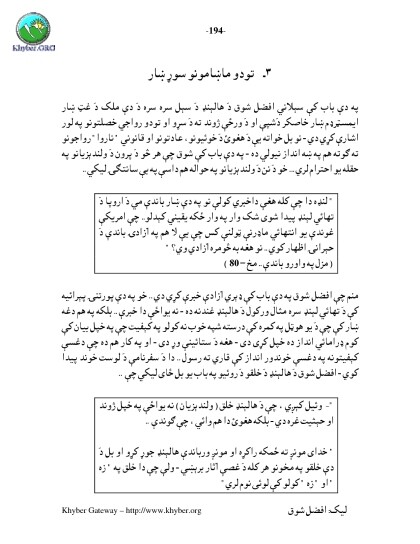 -194-
Khyber.ORG
۳۔ تودو ماښامونو سوړ ښار
په دې باب کې سېلانې افضل شوق د هالېنډ د سېل سره سره د دې ملک د غټ ښار
ايمسټرډم ښار خاصکر د شپې او د ورځې ژوند ته د سړو او تودو رواجي خصلتونو په لور
اشارې کړې دي - نو بل خوا ته يې د هغوئ د خوئيونو ، عادتونو او قانوني "ناروا" رواجونو
ته ګوته هم په ښه انداز نيولې ده - په دې باب کې شوق چې هر څو د پرون د ولنډېزيانو په
حقله يو احترام لري... خو د نن د ولنډېزيانو په حواله هم داسې په بې ساتنګۍ ليکي..
"لنډه دا چې کله هغې داخبرې کولې نو په دې ښار باندې مې د اروپا د
تهائي لېنډ پيدا شوی شک وار په وار ځکه يقيني کېدلو.. چې امريکې
غوندې يو انتهائي ماډرنې ټولنې کس چې يې لا هم په آزادۍ باندې د
حېرانۍ اظهار کوي.. نو هغه به څومره آزادي وي؟ "
( منزل په واورو باندې.. مخ – 80 )
منم چې افضل شوق په دې باب کې ډېرې آزادې خبرې کړې دي.. خو په دې پورتنۍ پېرائيه
کې د تهائي لېنډ سره مثال ورکول د هالېنډ غندنه ده - نه يواځې دا خبرې.. بلکه په هم دغه
ښار کې چې د يو هوټل په کمره کې د رسته شپه خوب نه کولو په کيفيت چې په خپل بيان کې
کوم ډرامائي انداز ده خپل کړی دی - هغه د ستائينې وړ دی - او په کار هم ده چې دغسې
کيفيتونه په دغسې خوندور انداز کې قاري ته رسول.. دا د سفرنامې د لوست خوند پيدا
کوي - افضل شوق د هالېنډ د خلقو د روئيو په باب يو بل ځای ليکي چې ..
"- وئيل کېږي ، چې د هالېنډ خلق (ولنډېزيان) نه يواځې په خپل ژوند
او حېثيت غره دي - بلکه هغوئ دا هم وائي ، چې ګوندې ..
" خدای مونږ ته ځمکه راکړه او مونږ ورباندې هالېنډ جوړ کړو او بل د
دې خلقو په مخونو هر کله د غصې آثار برېښي - ولې چې دا خلق په "زه
"او "زه "کولو کې لوئی نوم لري"
Khyber Gateway – http://www.khyber.org
ليک: افضل شوق